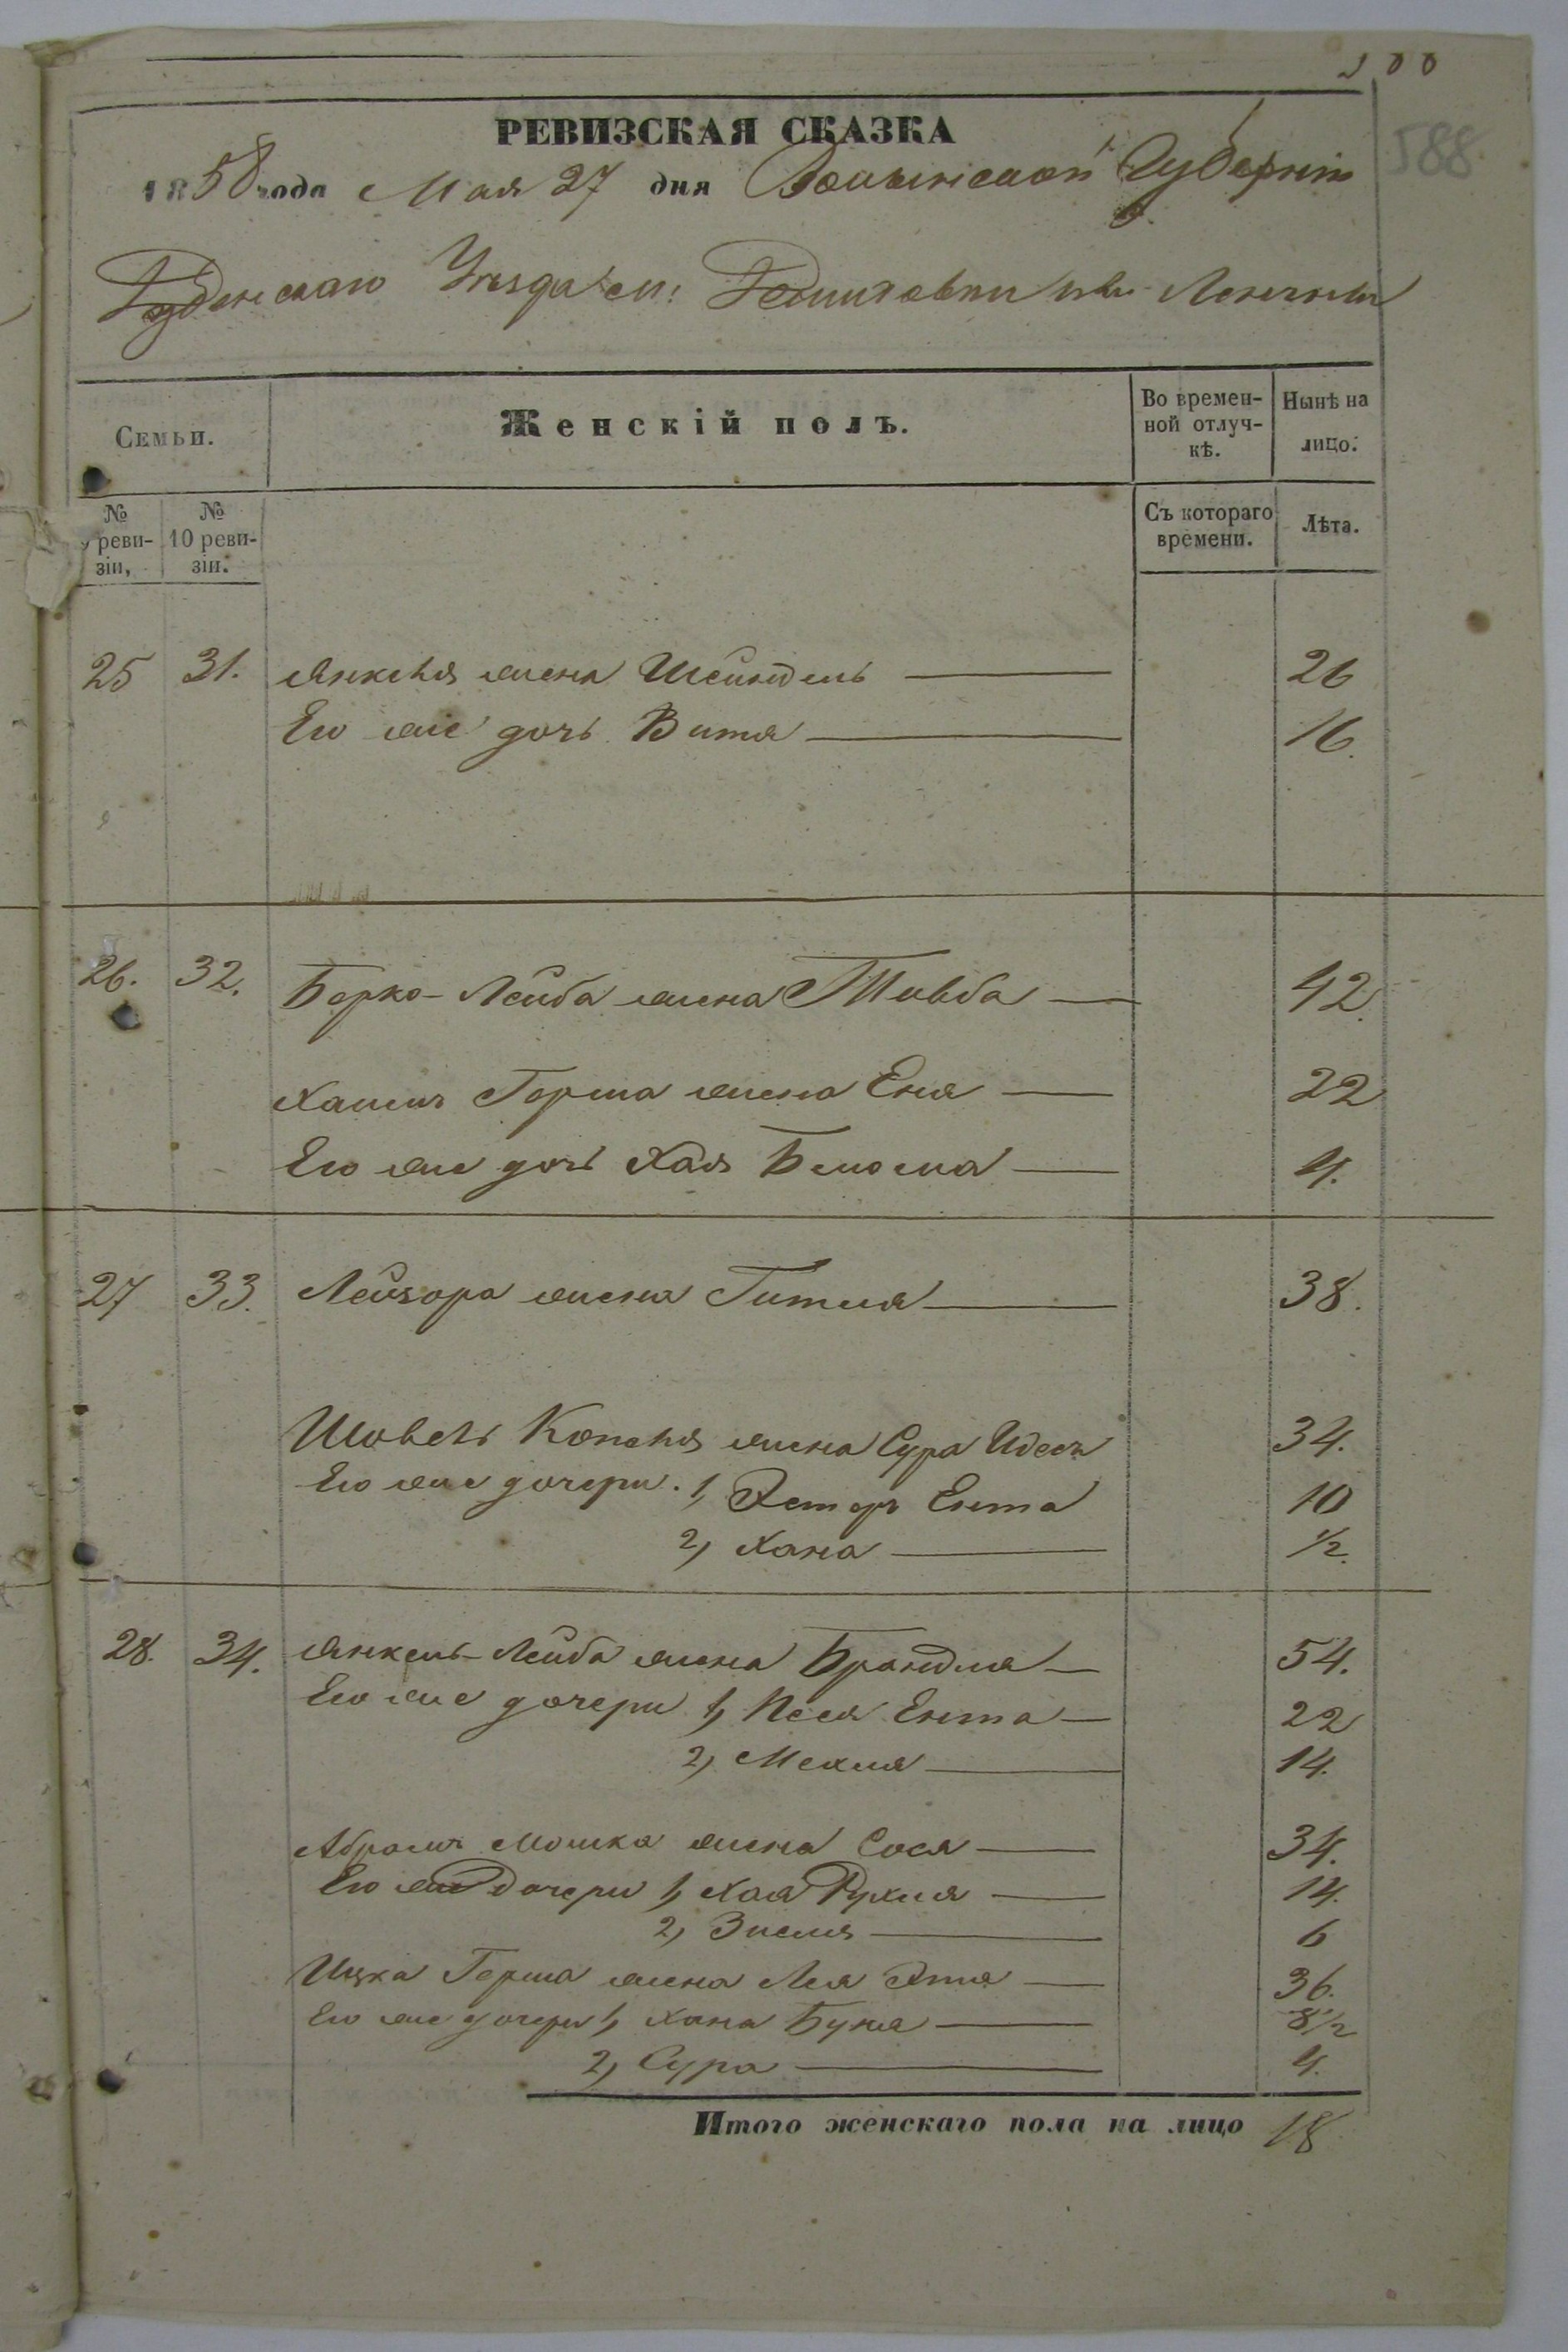 588
РЕВИЗСКАЯ СКАЗКА
1858 года Мая 27 дня Волынской Губерніи
Дубенскаго Уѣзда
Семьи.
Женскій полъ.
Во времен-
ной отлуч-
кѣ.
Нынѣ на
лицо.
№
9 реви-
зіи,
№
10 реви-
зіи.
Съ котораго
времени.
Лѣта.
25 31. Янкеля жена Шейндель 26
Его же дочь Витя 16.
26. 32. Берко-Лейба жена Тивба 42.
Хаимъ Герша жена Еня 22
Его же дочь Хая 4.
27 33. Лейзора жена Гитля 38.
Копеля жена Сура Идесъ 34.
Его же дочери. 1, Эстеръ Ента 10
2, Хана 1/2.
28. 34. Янкель-Лейба жена Брандля 54.
Его же дочери 1, Песя Ента 22
2, Мехля 14.
Абрамъ Мошка жена Сося 34.
Его же дочери 1, Хая Рухля 14.
2, Зисля 6
Ицка Герша жена Лея 36.
Его же дочери 1, Хана Буня 8 1/2
2, Сура 4.
Итого женскаго пола на лицо 18